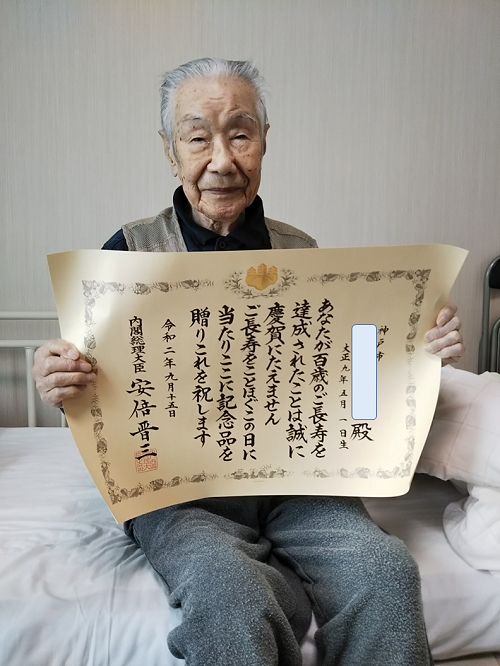 神戸市
殿
大正九年五月一日生
あなたが百歳のご長寿を
達成されたことは誠に
慶賀にたえません
ご長寿をことほぐこの日に
当たりここに記念品を
贈りこれを祝します
令和二年九月十五日
内閣総理大臣 安倍晋三